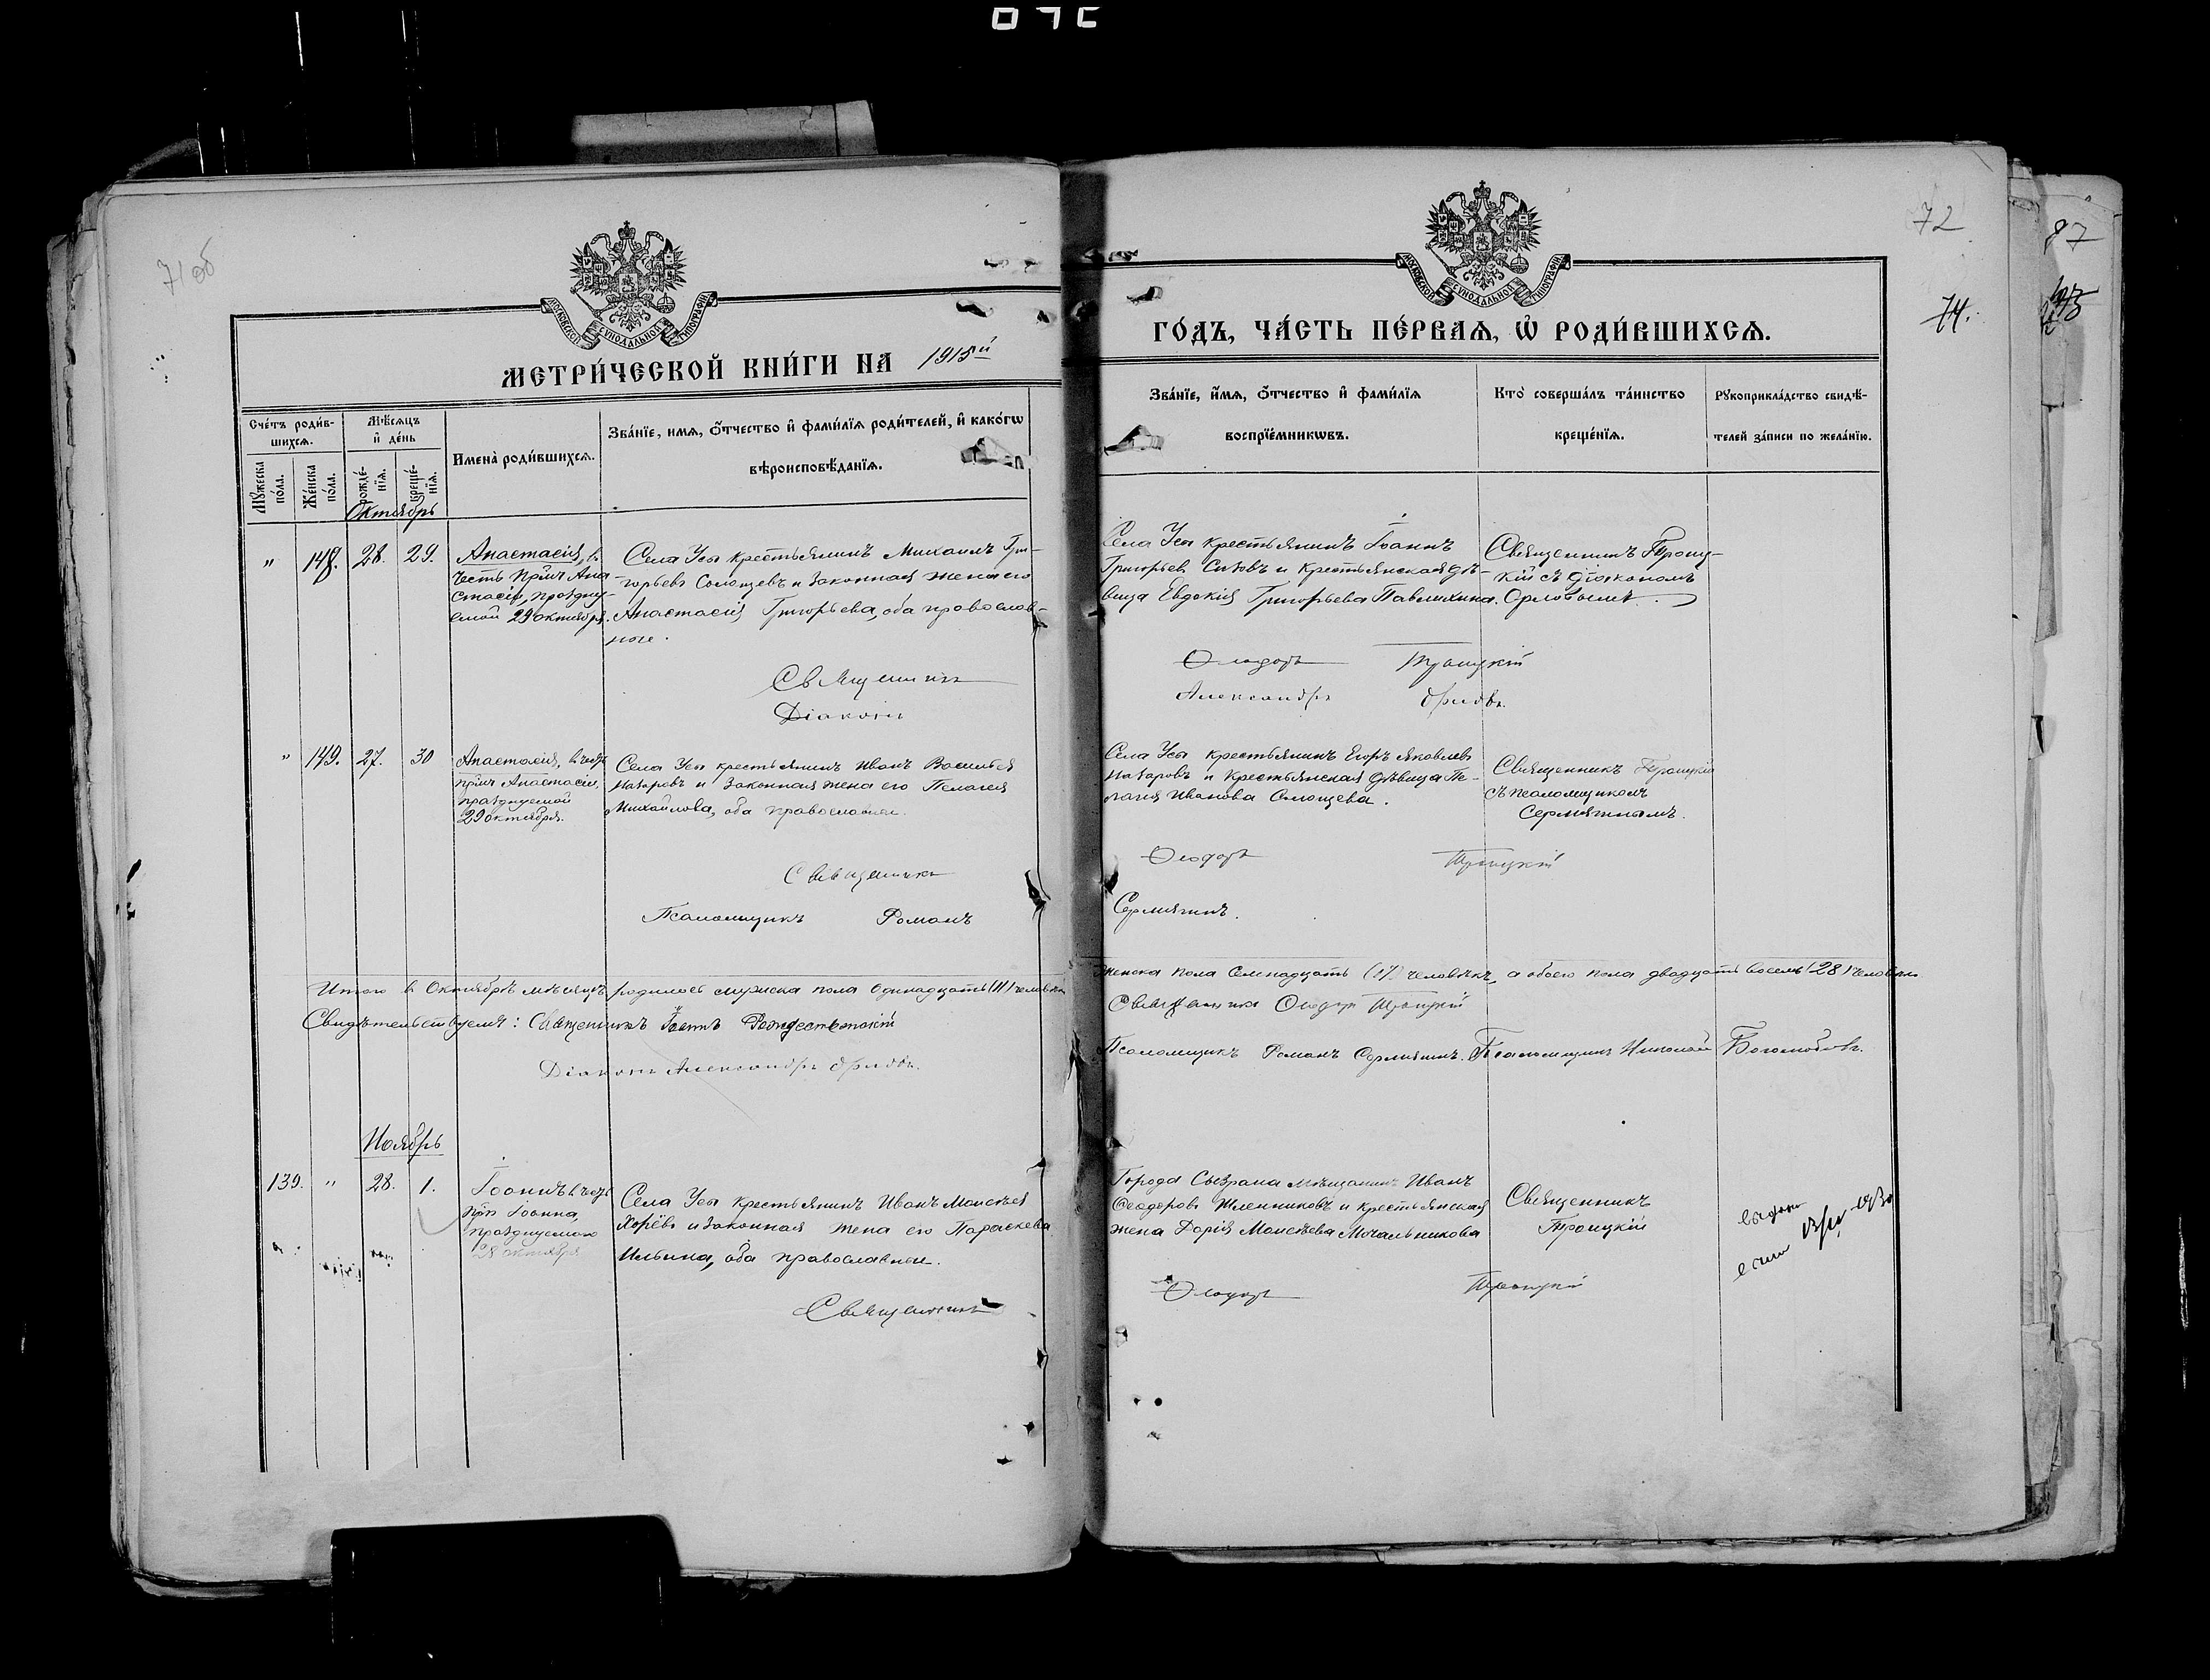 71 об
72
87
74.
МОСКОВСКОЙ СѴНОДАЛЬНОЙ ТИПОГРАФІИ
МОСКОВСКОЙ СѴНОДАЛЬНОЙ ТИПОГРАФІИ
МЕТРИ́ЧЕСКОЙ КНИ́ГИ НА 1915й
ГО́ДЪ, ЧА́СТЬ ПЕ́РВАѦ, Ѡ҆ РОДИ́ВШИХСѦ.
Сче́тъ роди́в-
шихсѧ.
Мꙋ́жеска
по́ла.
Же́нска
по́ла.
Мѣ́сѧцъ
и҆ де́нь
рожде́-
нїѧ.
креще́-
нїѧ.
Имена̀ роди́вшихсѧ.
Зва́нїе, имѧ, ѻ҆́тчество и҆ фами́лїѧ роди́телей, и҆ како́гѡ
вѣроисповѣ́данїѧ.
Зва́нїе, и҆́мѧ, ѻ҆́тчество и҆ фами́лїѧ
воспрїе́мникѡвъ.
Кто̀ соверша́лъ та́инство
креще́нїѧ.
Рꙋкоприкла́дство свидѣ́-
телей за́писи по жела́нїю.
Октябрь
" 148. 28. 29.
Анастасія, въ
честь прмч. Ана-
стасіи, праздну-
емой 29 октября.
Села Усы крестьянинъ Михаилъ Гри-
горьевъ Солонцевъ и законная жена его
Анастасія Григорьева, оба православ-
ные.
Села Усы крестьянинъ Іоаннъ
Григорьевъ Сизовъ и крестьянская дѣ-
вица Евдокія Григорьева Павлихина.
Священникъ Троиц-
кій съ діакономъ
Орловымъ.
Священникъ Ѳеодоръ Троицкій
Діаконъ Александръ Орловъ.
" 149. 27. 30
Анастасія, въ честь
прмч. Анастасіи,
празднуемой
29 октября.
Села Усы крестьянинъ Иванъ Васильевъ
Назаровъ и законная жена его Пелагея
Михайлова, оба православные.
Села Усы крестьянинъ Егоръ Яковлевъ
Назаровъ и крестьянская дѣвица Пе-
лагея Иванова Солонцева.
Священникъ Троицкій
съ псаломщикомъ
Сермягинымъ.
Священникъ Ѳеодоръ Троицкій
Псаломщикъ Романъ Сермягинъ.
Итого въ Октябрѣ мѣсяцѣ родилось мужска пола одинадцать (11) человѣкъ
женска пола семнадцать (17) человѣкъ, а обоего пола двадцать восемь (28) человѣкъ
Свидѣтельствуемъ: Священникъ Іоаннъ Рождественскій
Священникъ Ѳеодоръ Троицкій
Діаконъ Александръ Орловъ.
Псаломщикъ Романъ Сермягинъ. Псаломщикъ Николай Боголюбовъ.
Ноябрь
139. " 28. 1.
Іоаннъ въ честь
прп. Іоанна,
празднуемаго
28 октября
Села Усы крестьянинъ Иванъ Моисѣевъ
Хорёвъ и законная жена его Параскева
Ильина, оба православные.
Города Сызрана мѣщанинъ Иванъ
Ѳеодоровъ Жленниковъ и крестьянская
жена Дарія Моисѣева Мочальникова
Священникъ
Троицкій
Священникъ Ѳеодоръ Троицкій